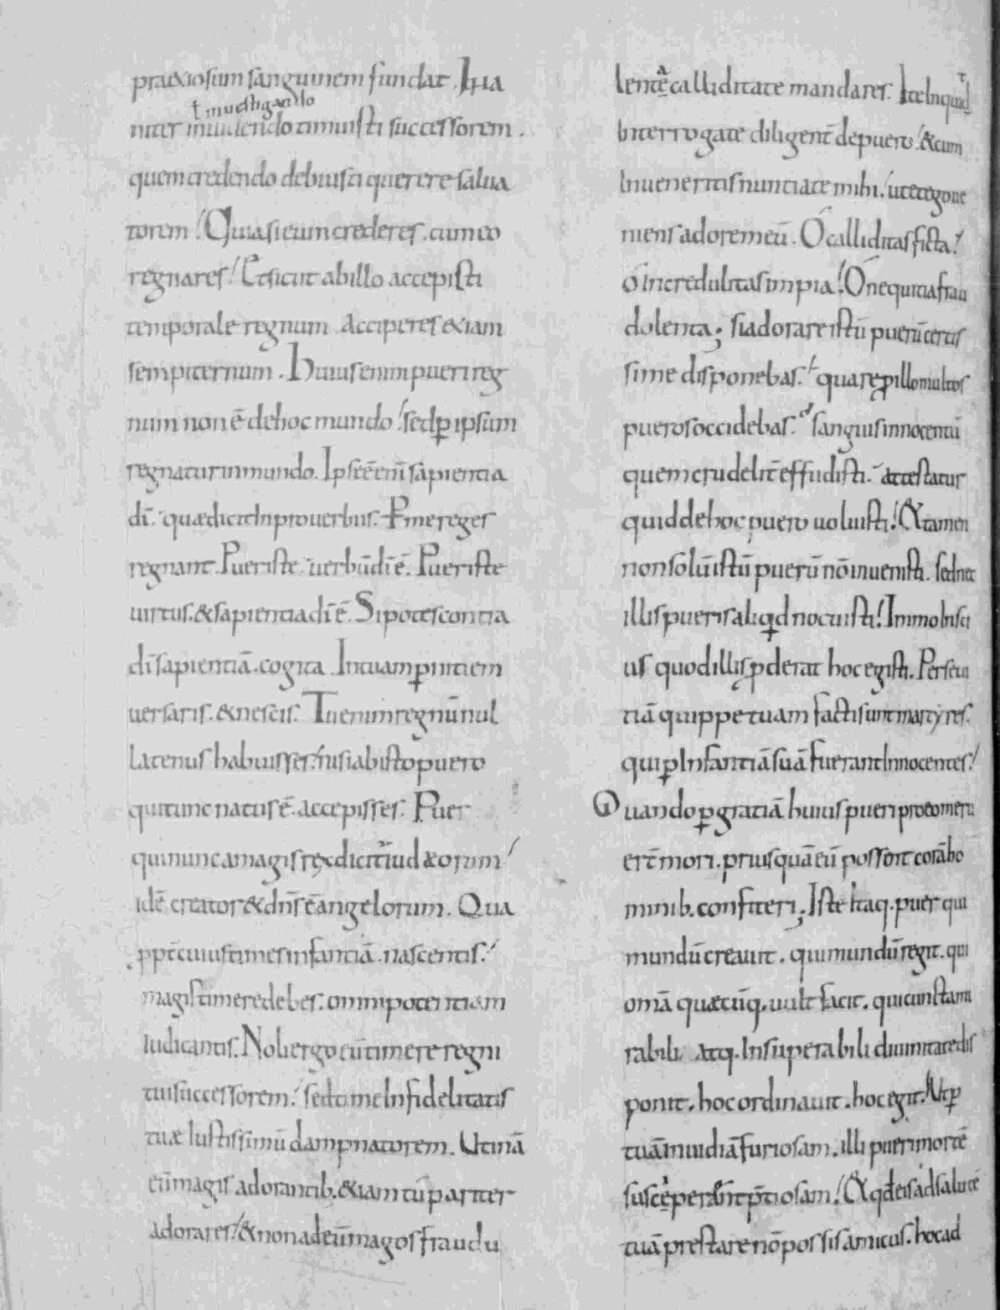 praetiosum sanguinem fundat. Ina
ł inuestigando
niter inuidendo timuisti successorem.
quem credendo debuisti querere salua
torem! Quia si eum crederes. cum eo
regnares! Et sicut ab illo accepisti
temporale regnum acciperes & iam
sempiternum. Huius enim pueri reg
num non ē de hoc mundo! sed ꝑ ipsum
regnatur in mundo. Ipse ē enī sapientia
dī. quae dicit In prouerbiis. Ꝑ me reges
regnant. Puer iste uerbū dī ē. Puer iste
uirtus. & sapientia dī ē. Si potes contra
dī sapientiā. cogita. In tuam ꝑnitiem
uersaris. & nescis. Tu enim regnū nul
latenus habuisses! nisi ab isto puero
qui tunc natus ē accepisses. Puer
qui nunc a magis rex dicit iudaeorum!
idē creator & dn̄s ē angelorum. Qua
ꝓpt̄ cuius times infantiā. nascentis!
magis timere debes. omnipotentiam
Iudicantis. Noli ergo eū timere regni
tui successorem! sed time Infidelitatis
tuae Iustissimū dampnatorem. Utinā
cū magis adorantib. & iam tu pariter
adorares! & non ad eū magos fraudu
lenta calliditate mandares. Ite Inquid
Interrogate diligent̄ de puero! & cum
Inueneritis nuntiate mihi! ut et ego ue
niens adorem eū. O calliditas ficta!
o incredulitas impia! O nequitia frau
dolenta; si adorare istū puerū certis
sime disponebas! quare ꝓ illo multos
pueros occidebas! sanguis innocentū
quem crudelit̄ effudisti. attestatur
quid de hoc puero uoluisti! & tamen
non solū istū puerū nō inuenisti. sed nec
illis pueris aliqd nocuisti! Immo Insci
us quod illis ꝓderat hoc egisti. Persecu
tiā quippe tuam facti sunt martyres.
qui ꝑ Infantiā suā fuerant Innocentes!
Quando ꝑ gratiā huius pueri pro eo meru
er̄t mori. prius quā eū possent corā ho
minib. confiteri; Iste itaq. puer qui
mundū creauit. qui mundū regit. qui
omā quaecūq. uult facit. qui cunstam
rabili. atq. Insuperabili diuinitate dis
ponit. hoc ordinauit. hoc egit. Ut ꝑ
tuā inuidiā furiosam. illi pueri mortē
susceperant p̄tiosam! & qd eis ad salutē
tuā prestare nō possis amicus. hoc ad